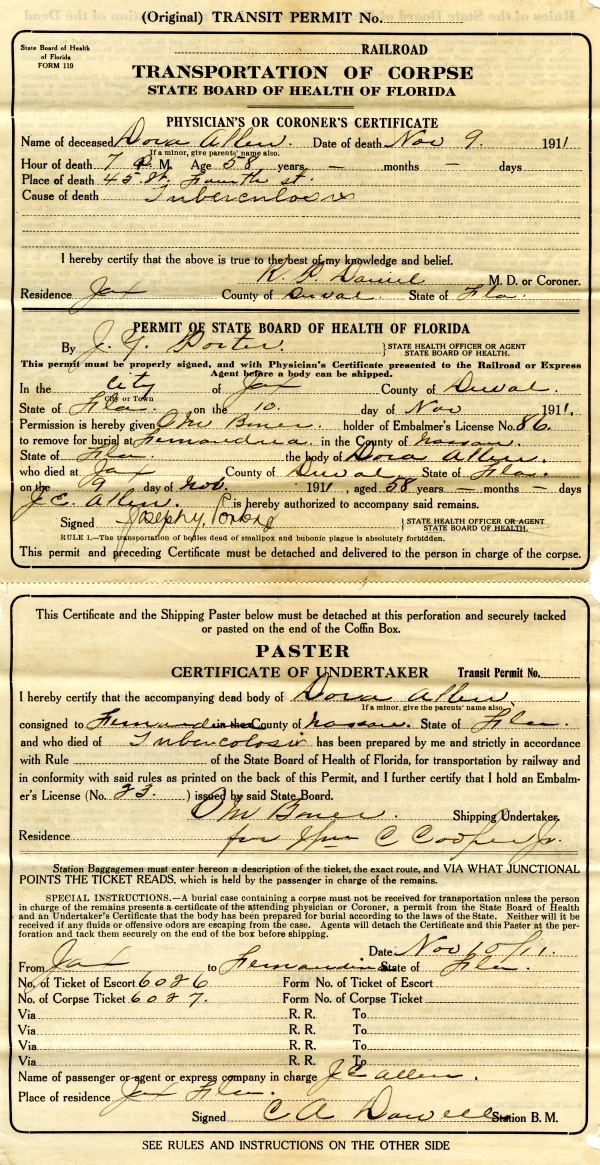 (Original) TRANSIT PERMIT No.
State Board of Health
of Florida
FORM 119
RAILROAD
TRANSPORTATION OF CORPSE
STATE BOARD OF HEALTH OF FLORIDA
PHYSICIAN'S OR CORONER'S CERTIFICATE
Name of deceased Dora Allen. Date of death Nov 9. 1911
If a minor, give parents' name also.
Hour of death 7 M. Age 58 years — months — days
Place of death 45 St. Fourth st.
Cause of death Tuberculosis
I hereby certify that the above is true to the best of my knowledge and belief.
R. D. Daniel M. D. or Coroner.
Residence Jax County of Duval. State of Fla.
PERMIT OF STATE BOARD OF HEALTH OF FLORIDA
By J. Y. Porter. } STATE HEALTH OFFICER OR AGENT
STATE BOARD OF HEALTH.
This permit must be properly signed, and with Physician's Certificate presented to the Railroad or Express
Agent before a body can be shipped.
In the City of Jax County of Duval.
City or Town
State of Fla. on the 10. day of Nov 1911.
Permission is hereby given O M Boner. holder of Embalmer's License No. 86.
to remove for burial at Fernandina. in the County of Nassau.
State of Fla. the body of Dora Allen.
who died at Jax County of Duval State of Fla.
on the 9 day of Nov. 1911, aged 58 years — months — days
J. E. Allen. is hereby authorized to accompany said remains.
Signed Joseph Y. Porter } STATE HEALTH OFFICER OR AGENT
STATE BOARD OF HEALTH.
RULE 1.—The transportation of bodies dead of smallpox and bubonic plague is absolutely forbidden.
This permit and preceding Certificate must be detached and delivered to the person in charge of the corpse.
This Certificate and the Shipping Paster below must be detached at this perforation and securely tacked
or pasted on the end of the Coffin Box.
PASTER
CERTIFICATE OF UNDERTAKER Transit Permit No.
I hereby certify that the accompanying dead body of Dora Allen
If a minor, give the parents' name also.
consigned to Fernandina in the County of Nassau. State of Fla.
and who died of Tubercolosis has been prepared by me and strictly in accordance
with Rule of the State Board of Health of Florida, for transportation by railway and
in conformity with said rules as printed on the back of this Permit, and I further certify that I hold an Embalm-
er's License (No. 23. ) issued by said State Board.
O M Boner. Shipping Undertaker.
Residence for Wm C Cooper Jr.
Station Baggagemen must enter hereon a description of the ticket, the exact route, and VIA WHAT JUNCTIONAL
POINTS THE TICKET READS, which is held by the passenger in charge of the remains.
SPECIAL INSTRUCTIONS.—A burial case containing a corpse must not be received for transportation unless the person
in charge of the remains presents a certificate of the attending physician or Coroner, a permit from the State Board of Health
and an Undertaker's Certificate that the body has been prepared for burial according to the laws of the State. Neither will it be
received if any fluids or offensive odors are escaping from the case. Agents will detach the Certificate and this Paster at the per-
foration and tack them securely on the end of the box before shipping.
Date Nov 10/11.
From Jax to Fernandina State of Fla.
No. of Ticket of Escort 6026 Form No. of Ticket of Escort
No. of Corpse Ticket 6027. Form No. of Corpse Ticket
Via R. R. To
Via R. R. To
Via R. R. To
Via R. R. To
Name of passenger or agent or express company in charge J E Allen.
Place of residence Jax Fla.
Signed C A Dowell Station B. M.
SEE RULES AND INSTRUCTIONS ON THE OTHER SIDE